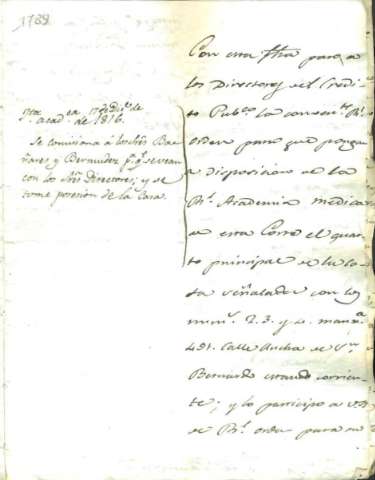 1789
Jta
de 1816.
Se comisiona á los Sres Ba
ñares y Bermudez pa qe se vean
con los Sres Directores; y se
tome posesion de la Casa.
Con esta fha paso a
los Directores del Credi
to Pubco la convente Rl
orden para que pongan
a disposicion de la
Rl Academia medica
de esta Corte el quar
to principal de la ca
sa señalada con los
nums 2. 3. y 4. manza
491. Calle Ancha de Sn
Bernardo estando corrien
te; y lo participo a V.S.
de Rl orden para su